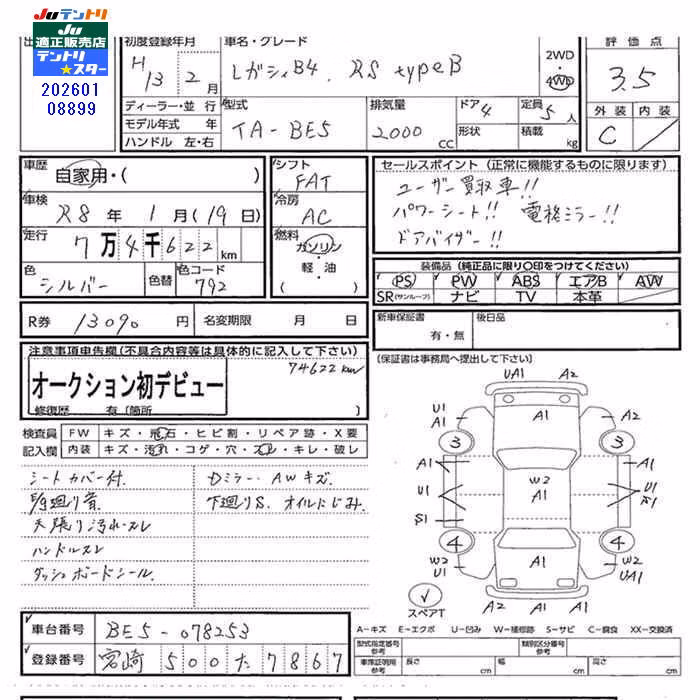 JUテントリ
JU
適正販売店
テントリ
★スター
202601
08899
初度登録年月
H13 2月
車名・グレード
レガシィB4. RS typeB
2WD
・
4WD
評価点
3.5
外装 内装
C
ディーラー・並行
モデル年式 年
ハンドル 左・右
型式
TA-BE5
排気量
2000 cc
ドア 4
形状
定員 5人
積載 kg
車歴
自家用・( )
車検
R8年 1月(19日)
走行
7万4千622km
色
シルバー
色替
色コード
792
シフト
FAT
冷房
AC
燃料
ガソリン
・
軽・油
( )
セールスポイント(正常に機能するものに限ります)
ユーザー買取車!!
パワーシート!! 電格ミラー!!
ドアバイザー!!
装備品(純正品に限り○印をつけてください)
PS PW ABS エアB AW
SR(サンルーフ) ナビ TV 本革
R券 13090円
名変期限 月 日
新車保証書
有・無
後日品
(保証書は事務局へ提出して下さい)
注意事項申告欄(不具合内容等は具体的に記入して下さい)
74622km
オークション初デビュー
修復歴 有(箇所 )
検査員
記入欄
FW キズ・飛石・ヒビ割・リペア跡・X要
内装 キズ・汚れ・コゲ・穴・スレ・キレ・破レ
シートカバー付. Dミラー. AWキズ.
下廻りS. オイルにじみ.
天張り汚れ・スレ
ハンドルスレ
ダッシュボードシール.
UA1 A2
A1
U1 A1 A2
3 3
A1 A1
W2
A2
U1 U1
S1
S1
4 4
W2 U1 A1 W2 UA1
A2 A1 A2
スペアT
A-キズ E-エクボ U-凹み W-補修跡 S-サビ C-腐食 XX-交換済
車台番号 BE5-078253
登録番号 宮崎 500 た 7867
型式指定番号
参考
類別区分番号
参考
車庫証明用
参考
長さ cm 幅 cm 高さ cm